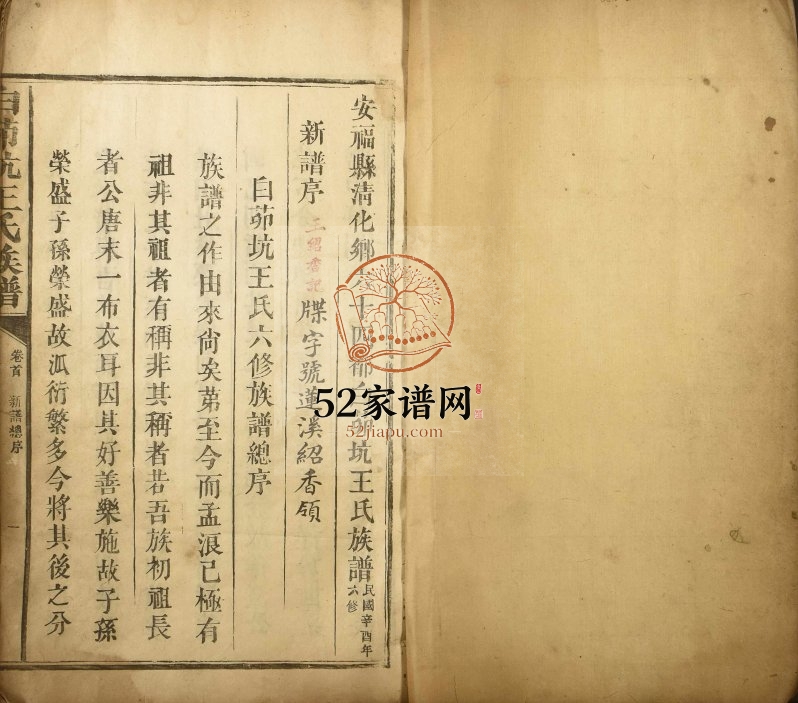 安福縣清化鄉六十四都白茆坑王氏族譜民國辛酉年六修
新譜序 王紹香記 牒字號蓮溪紹香領
白茆坑王氏六修族譜總序
族譜之作由來尙矣第至今而孟浪已極有
祖非其祖者有稱非其稱者若吾族初祖長
者公唐末一布衣耳因其好善樂施故子孫
榮盛子孫榮盛故派衍繁多今將其後之分
白茆坑王氏族譜 卷首 新譜總序 一
52家谱网
52jiapu.com